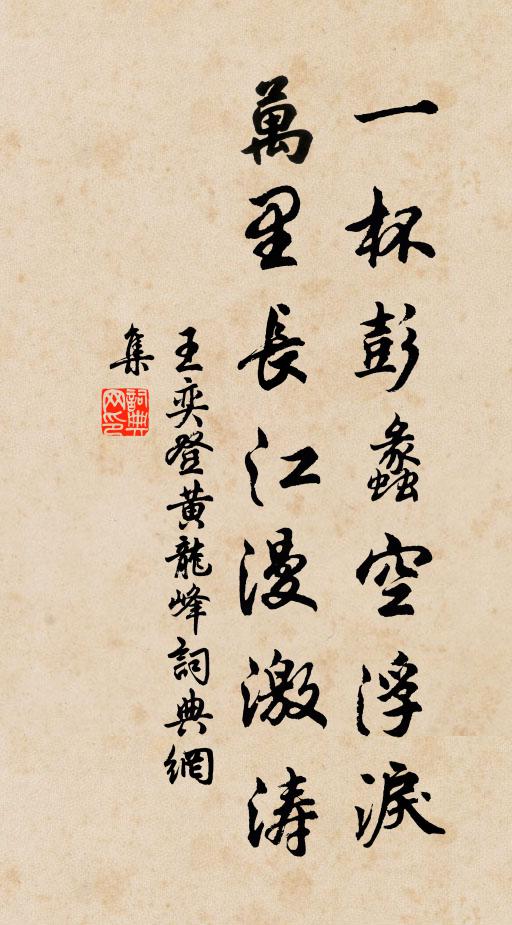 一杯彭蠡空浮淚
萬里長江漫激濤
王奕登黃龍峰詞典網
集
詞典
网印